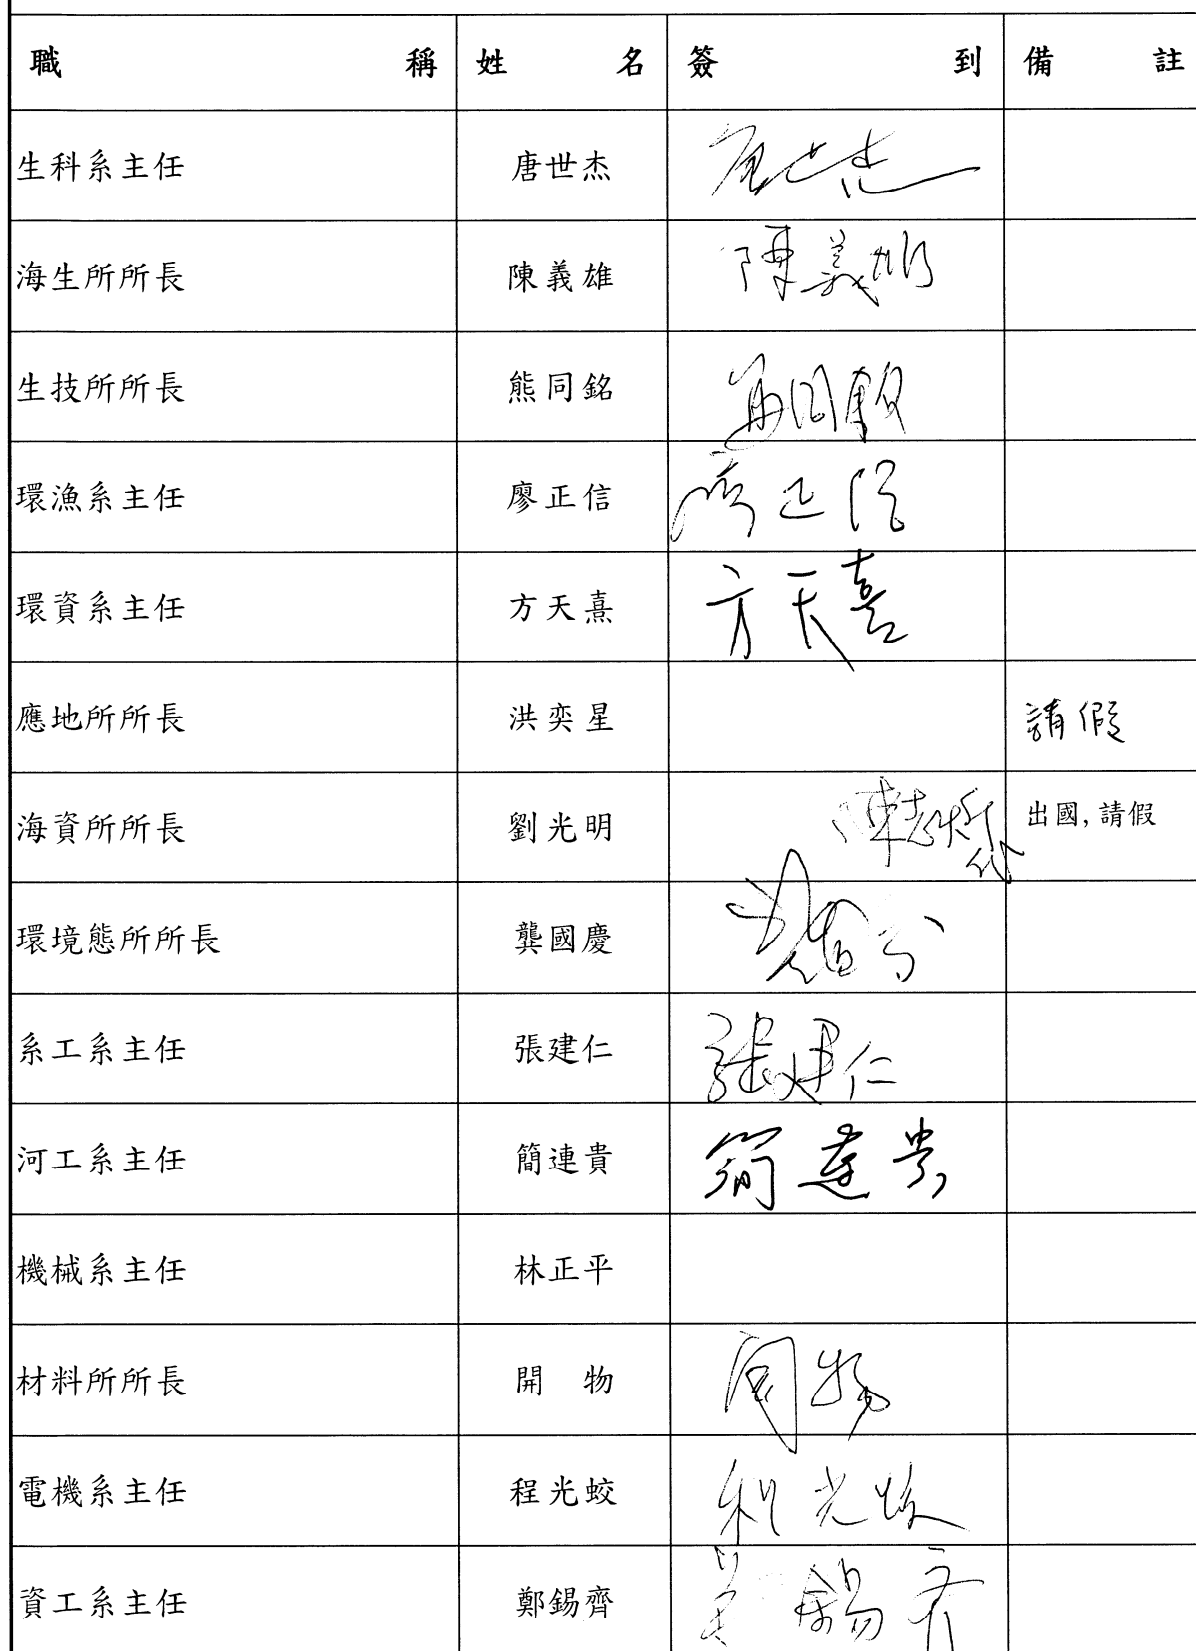 職稱 姓名 簽到 備註
生科系主任 唐世杰 唐世杰
海生所所長 陳義雄 陳義雄
生技所所長 熊同銘
環漁系主任 廖正信 廖正信
環資系主任 方天熹 方天熹
應地所所長 洪奕星 請假
海資所所長 劉光明 代 出國,請假
環境態所所長 龔國慶
系工系主任 張建仁 張建仁
河工系主任 簡連貴 簡連貴
機械系主任 林正平
材料所所長 開物 開物
電機系主任 程光蛟 程光蛟
資工系主任 鄭錫齊 鄭錫齊